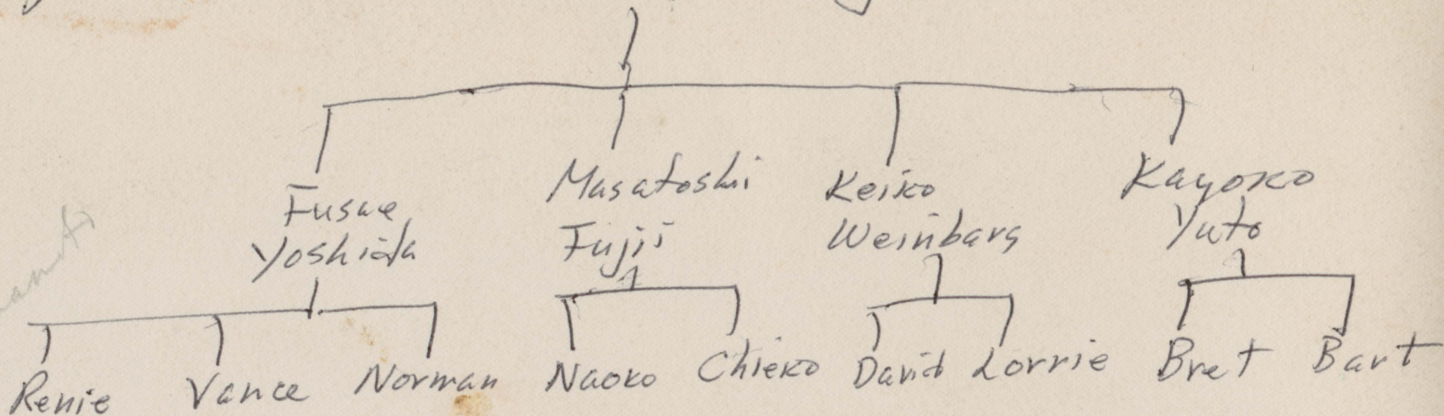 Fusae
Yoshida
Masatoshi
Fujii
Keiko
Weinbarg
Kayoko
Yuto
Renie Vance Norman Naoko Chieko David Lorrie Bret Bart